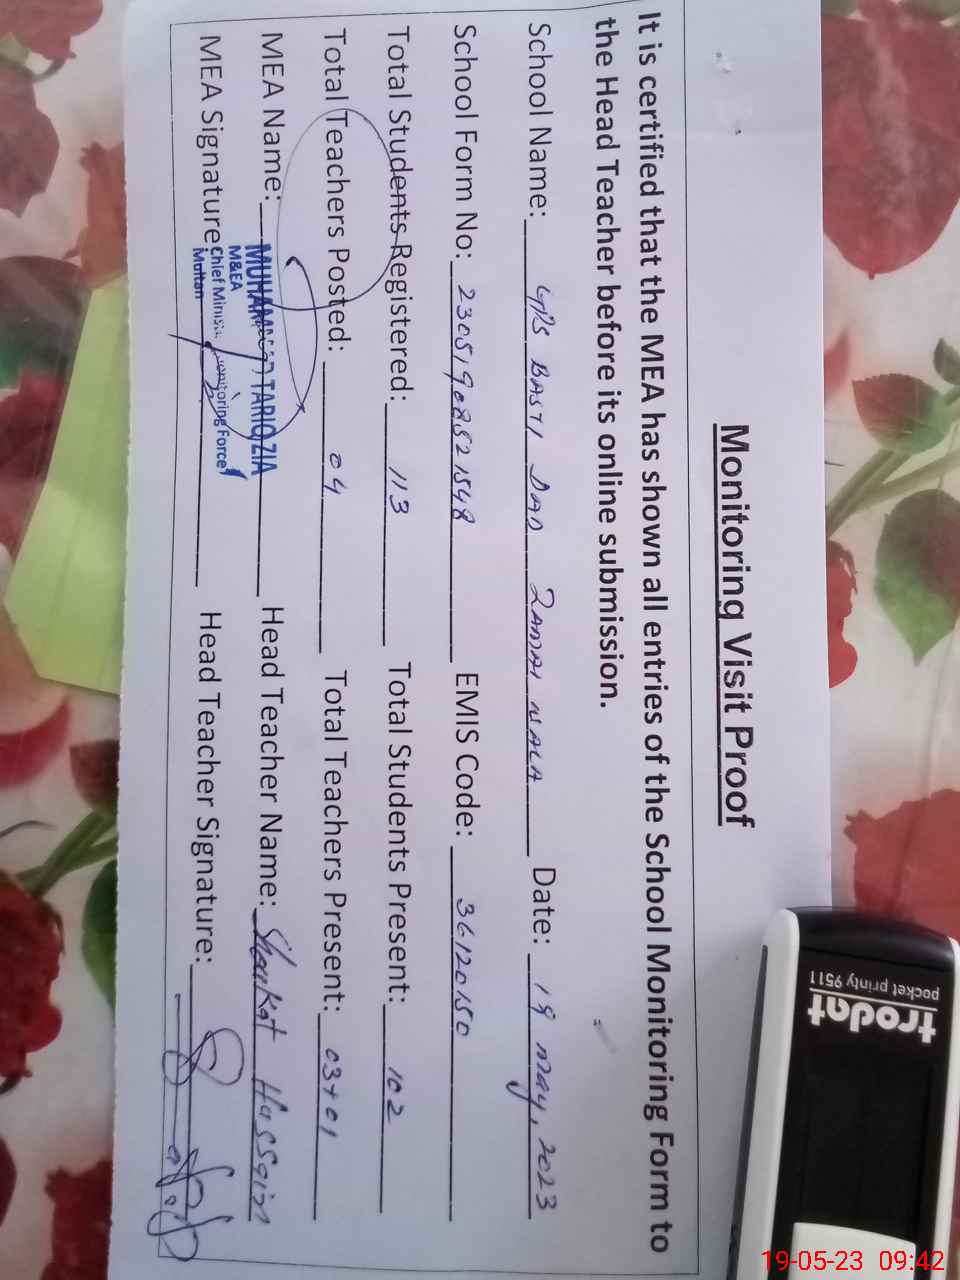 Monitoring Visit Proof
It is certified that the MEA has shown all entries of the School Monitoring Form to
the Head Teacher before its online submission.
School Name: GPS BASTI DAD ZAMAI WALA Date: 19 May, 2023
School Form No: 23051908521548 EMIS Code: 36120150
Total Students Registered: 113 Total Students Present: 102
Total Teachers Posted: 04 Total Teachers Present: 03+01
MEA Name: MUHAMMAD TARIQ ZIA Head Teacher Name: Shoukat Hussain
M&EA
MEA Signature: Chief Minister Monitoring Force Head Teacher Signature:
Multan
trodat
pocket printy 9511
19-05-23 09:42